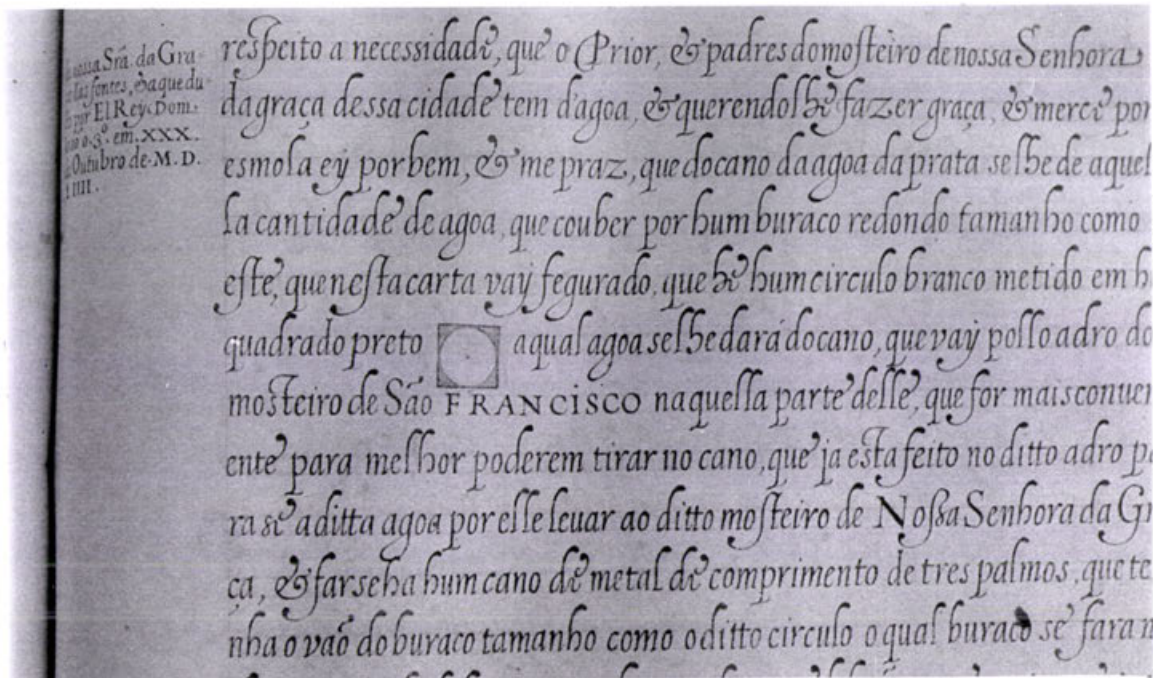 nossa Srã. da Gra-
das fontes, & aquedu-
por El Rey Dom.
o 3º. em. XXX.
Outubro de. M. D.
IIII.
respeito a necessidade, que o Prior, & padres do mosteiro de nossa Senhora
da graça dessa cidade tem d'agoa, & querendolhe fazer graça, & merce por
esmola ey por bem, & me praz, que do cano da agoa da prata se lhe de aquel
la cantidade de agoa, que couber por hum buraco redondo tamanho como
este, que nesta carta vaÿ fegurado, que he hum circulo branco metido em h
quadrado preto a qual agoa se lhe dará do cano, que vaÿ pollo adro do
mosteiro de São FRANCISCO naquella parte delle, que for mais conuen
ente para melhor poderem tirar no cano, que ja esta feito no ditto adro pa
ra se a ditta agoa por elle leuar ao ditto mosteiro de Nossa Senhora da Gr
ça, & farseha hum cano de metal de comprimento de tres palmos, que te
nha o vaõ do buraco tamanho como o ditto circulo o qual buraco se fara n